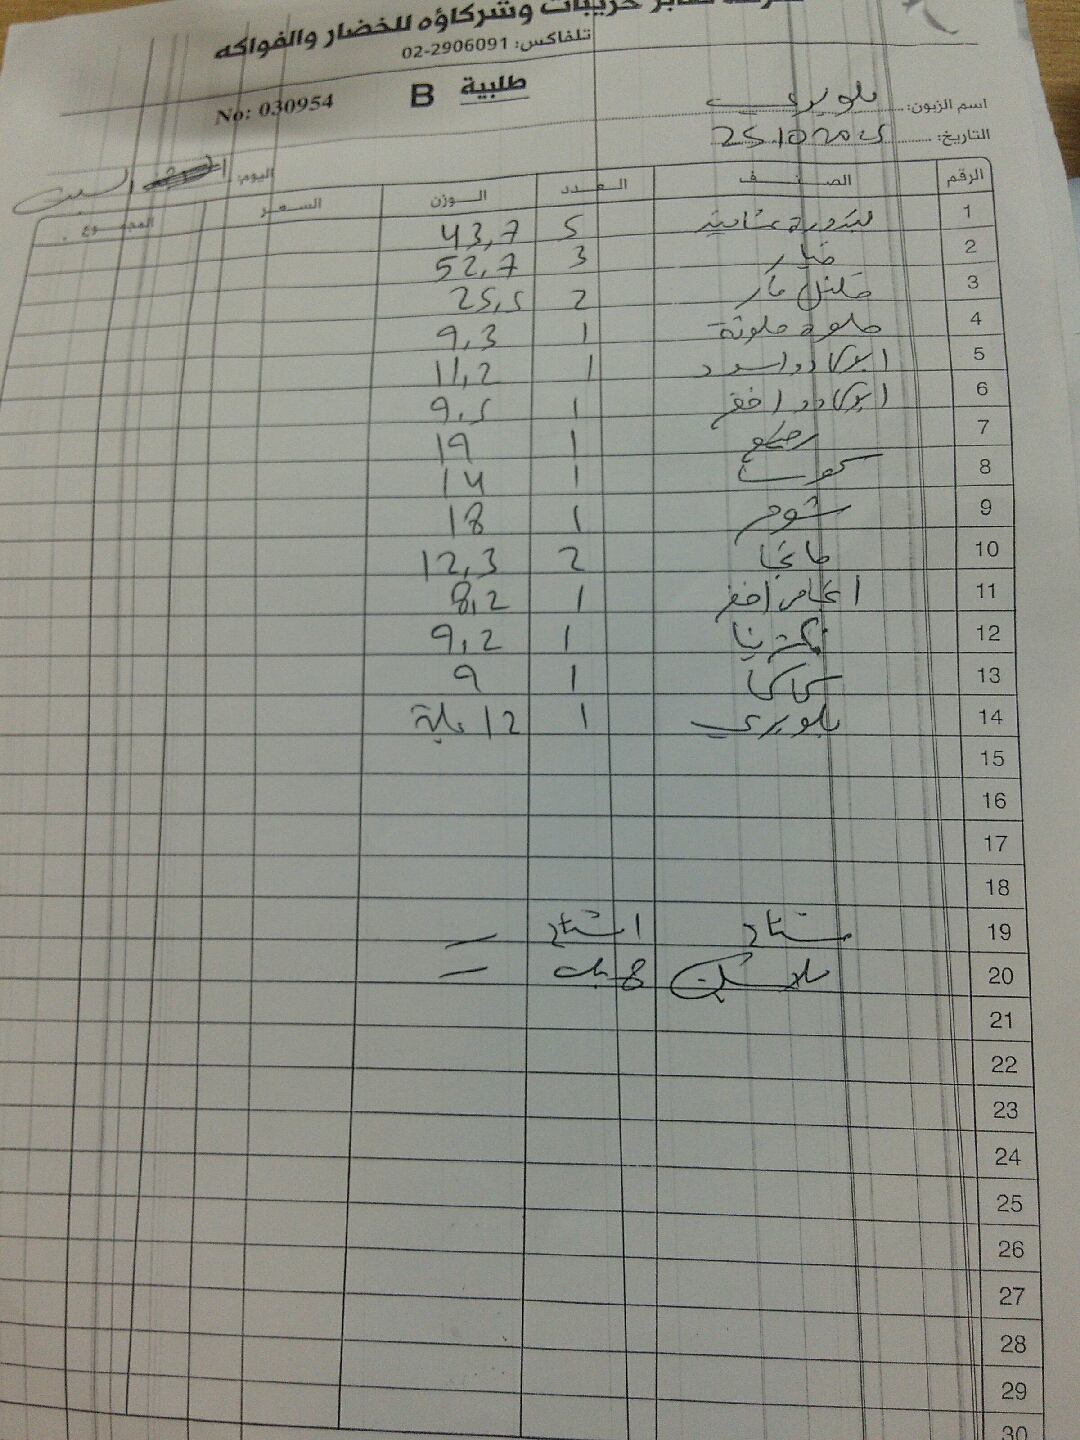 وشركاؤه للخضار والفواكه
تلفاكس: 02-2906091
طلبية B No: 030954
اسم الزبون:
التاريخ: 25.10.2025
اليوم: السبت
الرقم الصنف العدد الوزن السعر المجموع
1 بندورة 5 43,7
2 خيار 3 52,7
3 فلفل حار 2 25,5
4 حلوة ملونة 1 9,3
5 ابوكادو اسود 1 11,2
6 ابوكادو اخضر 1 9,5
7 1 19
8 1 14
9 شومر 1 18
10 مانجا 2 12,3
11 اجاص اخضر 1 8,2
12 1 9,2
13 كاكا 1 9
14 بلوبري 1 12 علبة
15
16
17
18
19
20 8
21
22
23
24
25
26
27
28
29
30